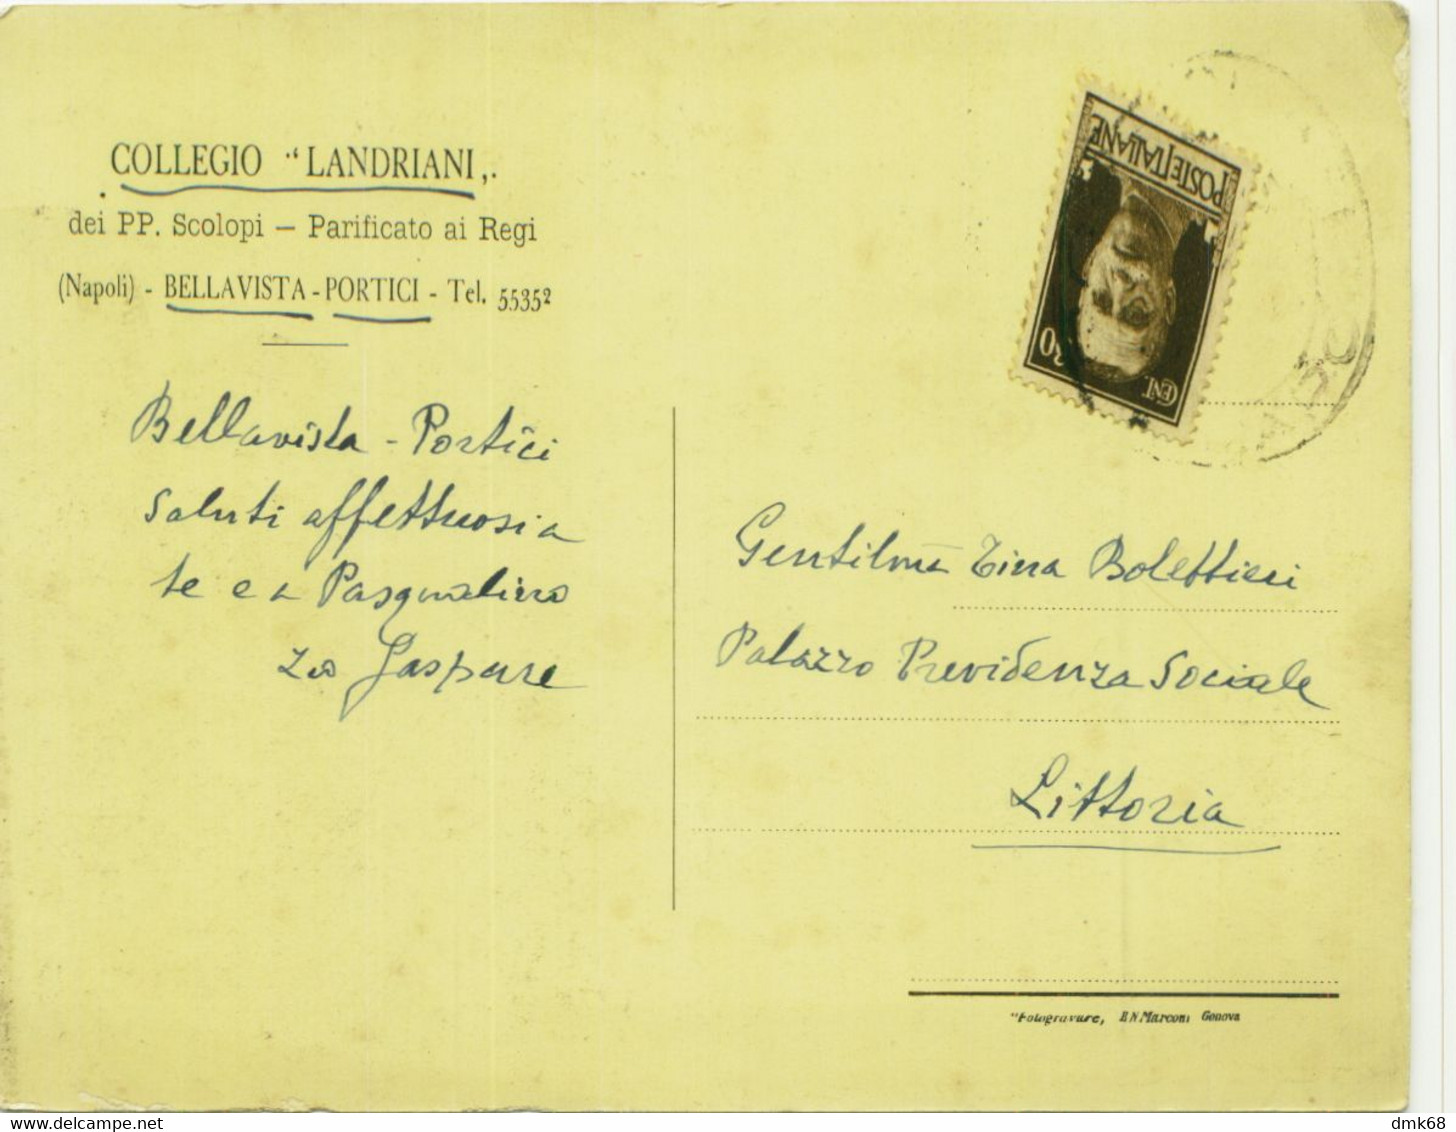 COLLEGIO "LANDRIANI,,.
dei PP. Scolopi — Parificato ai Regi
(Napoli) - BELLAVISTA - PORTICI - Tel. 55352
Bellavista - Portici
Saluti affettuosi a
te e a Pasqualino
zio Gaspare
POSTE ITALIANE
CENT. 30
Gentilma Tina Bolettieri
Palazzo Previdenza Sociale
Littoria
"Fotogravure, E.N. Marconi Genova
dmk68
www.delcampe.net